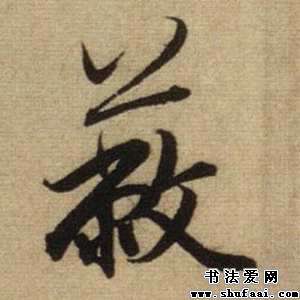 蔽
书法爱网
www.shufaai.com